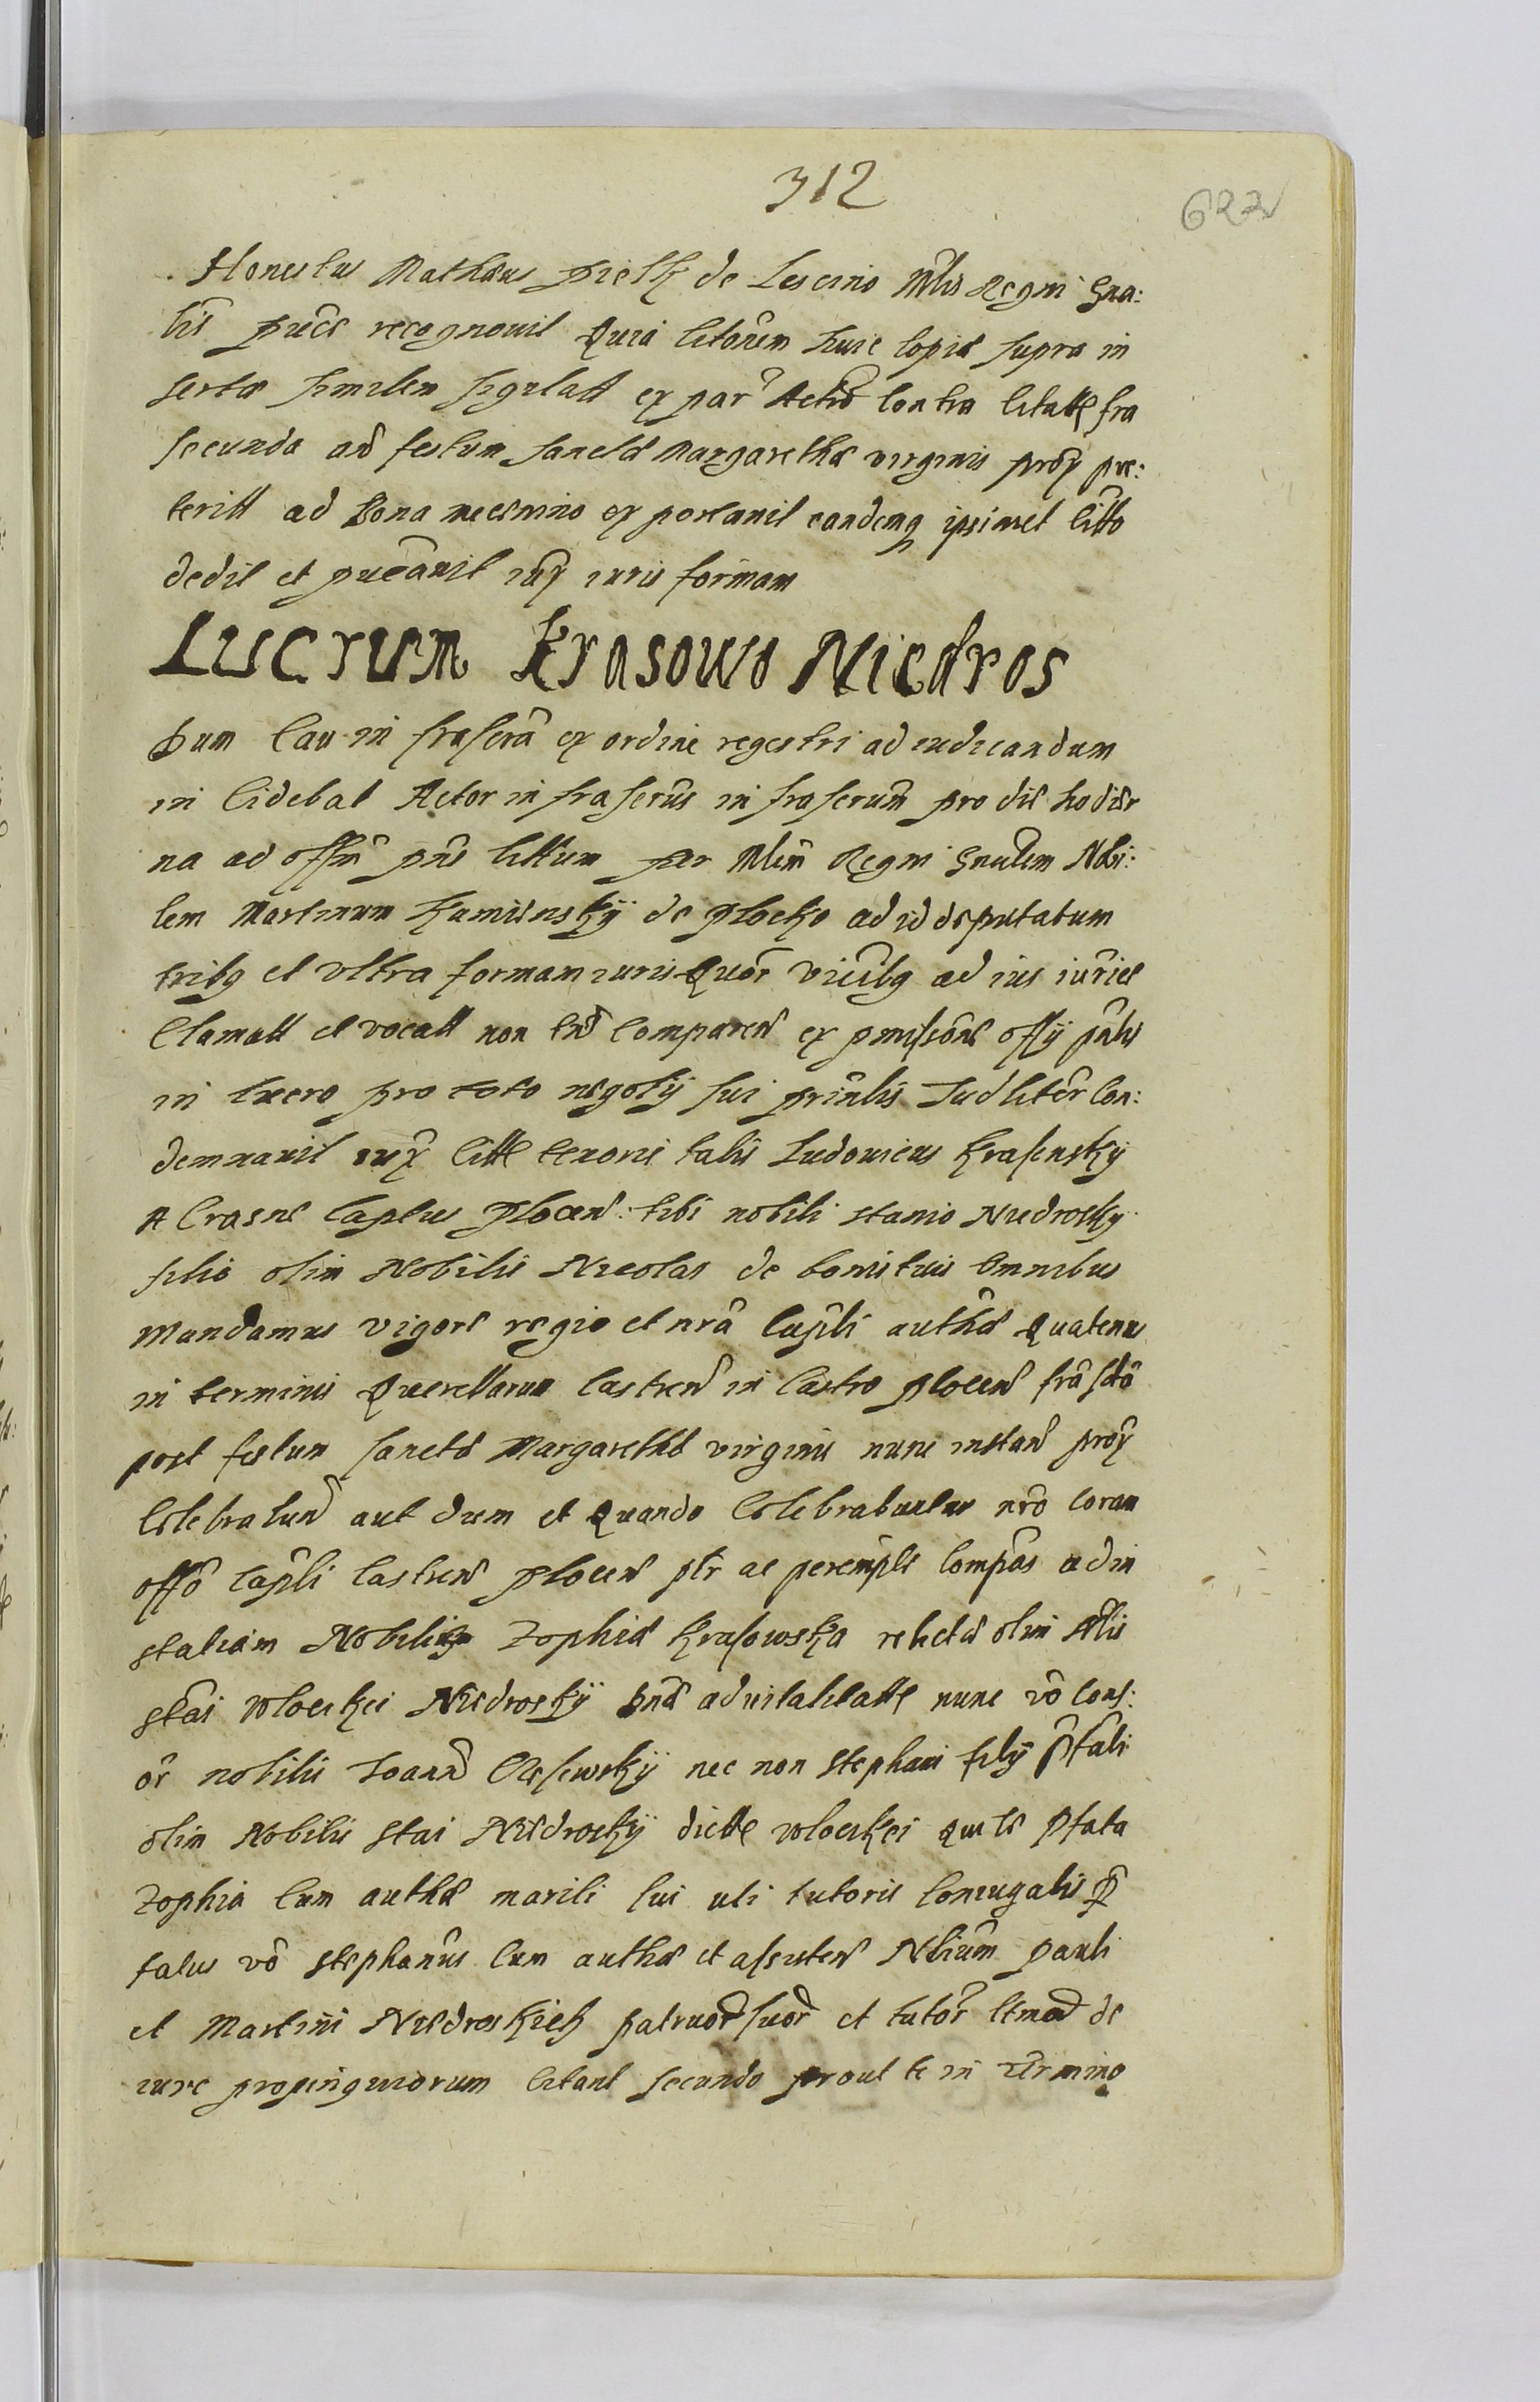 312
622
Honestus Mathias pielk de Lescino Mlis Regni Gna:
lis pncs recognouit Quia litorem huic Copia supra in
serta similem sigilatt ex par Acto Contra Citatt fra
secunda ad festum sancta Margaretha virginis prox pre:
teritt ad Bona necsnino ex portauit eandemq ipsimet Citto
dedit et pucauit iux iuris formam
Lucrum Krasowo Niedros
Dum Cau in frascra ex ordine regestri ad iudicandum
in Cidebat Actor in frascrus in frascrum pro die hodier
na ad offm pns Cittum per Mlem Regni Gnalem Nobi:
lem Martinum Kamiensky de plocko ad id deputatum
tribq et vltra formam iuris Quor vicibq ad ius iurice
Clamatt et vocatt non tn Comparen ex pmissione offy pntis
in lucro pro toto negoty sui prinlis Iudliter Con:
demnauit iux Citt tenoris talis Ludouicus Krasensky
A Crasne Captus plocen: tibi nobili stanio Niedrosky
filio olim Nobilis Nicolai de bonis tuis Omnibus
Mandamus vigore regio et nra Capli autha Quatenus
in terminis Querellarum Castren in Castro plocen fra scda
post festum sancta Margaretha virginis nunc instan prox
Celebratun aut dum et Quando Celebrabuntur nro Coram
offo Capli Castren plocen ptr ac perempte Compas ad in
stantiam Nobilis Zophia Krasowska relicta olim Nlis
stai wloczkei Niedrosky Dna aduitalitatt nunc vo Cons:
or nobilis Joann Olszewsky nec non Stephani fily pfati
olim Nobilis Stai Niedrosky dictt wloczkei qui te pfata
Zophia Cum autha mariti sui uti tutoris Coniugalis p
fatus vo Stephanus Cum autha et assisten Nbium pauli
et Martini Niedroskich patruor suor et tutor tmod de
iure propinquiorum Citant secundo prout te in termino